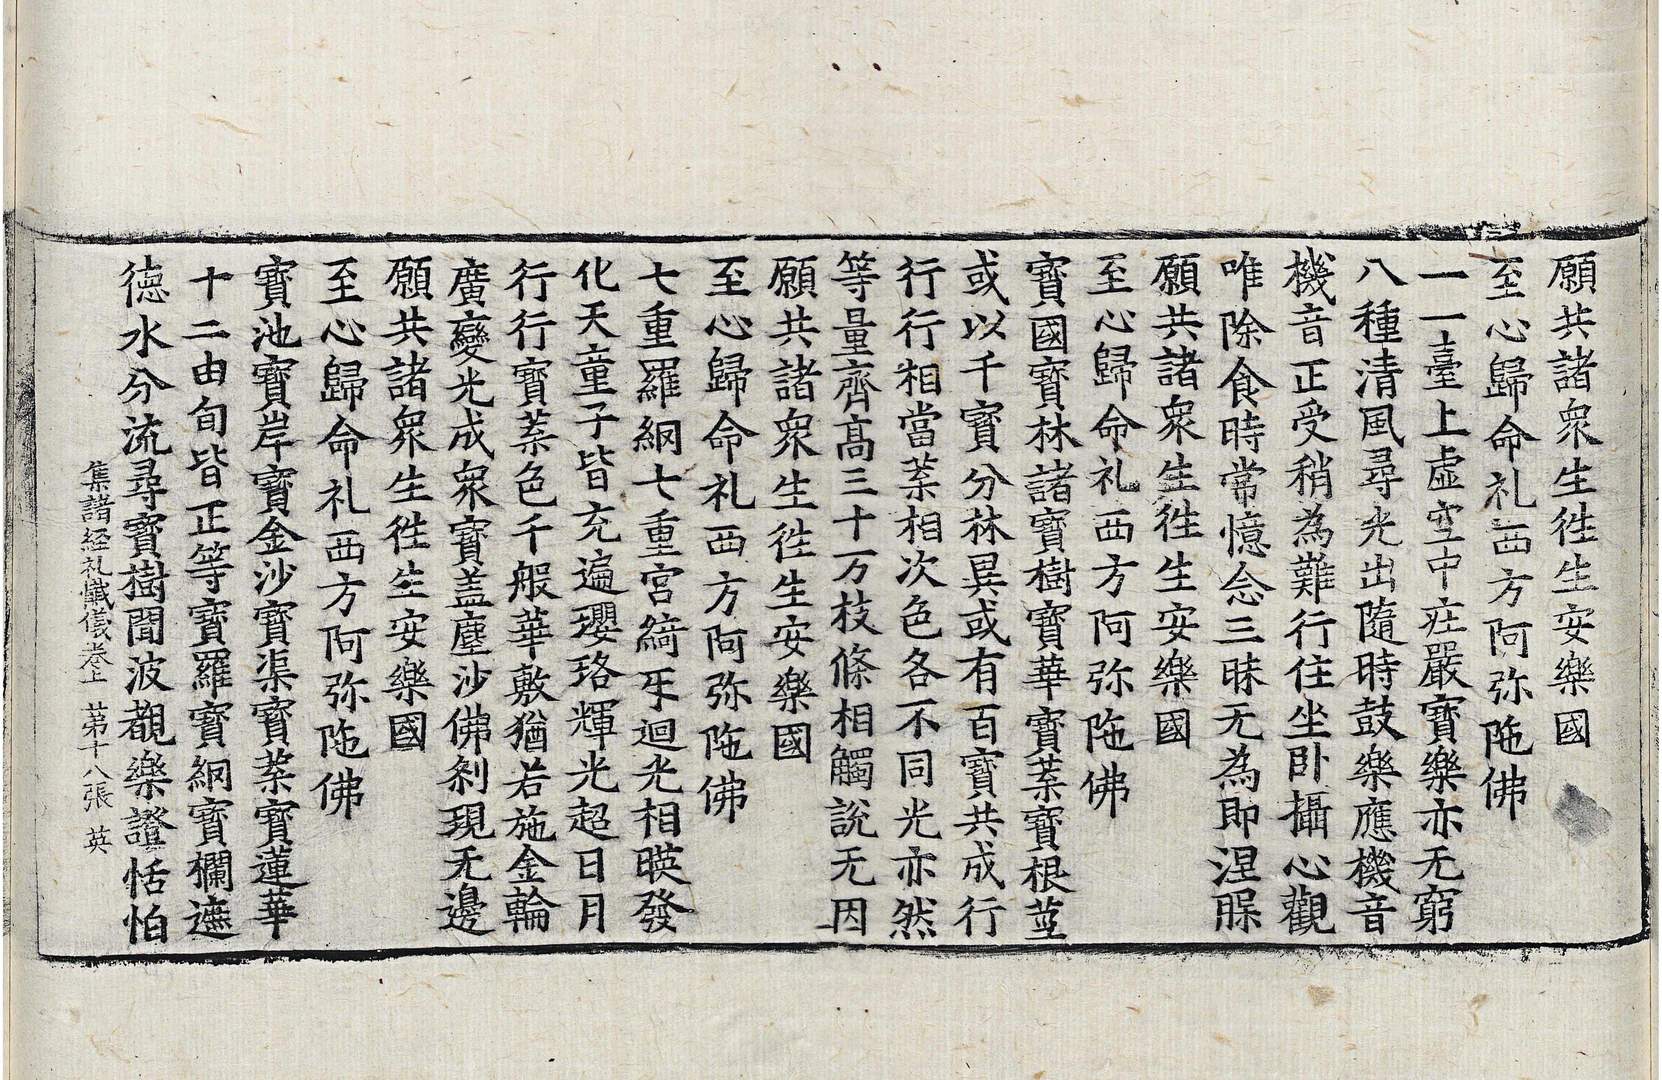 願共諸衆生徃生安樂國
至心歸命礼西方阿弥陁佛
一一臺上虛空中庄嚴寶樂亦无窮
八種清風尋光出隨時鼓樂應機音
機音正受稍為難行住坐卧攝心觀
唯除食時常憶念三昧无為即涅槃
願共諸衆生徃生安樂國
至心歸命礼西方阿弥陁佛
寶國寶林諸寶樹寶華寶葉寶根莖
或以千寶分林異或有百寶共成行
行行相當葉相次色各不同光亦然
等量齊髙三十万枝條相觸說无因
願共諸衆生徃生安樂國
至心歸命礼西方阿弥陁佛
七重羅網七重宮綺牙迴光相暎發
化天童子皆充遍瓔珞輝光超日月
行行寶葉色千般華敷猶若旋金輪
廣變光成衆寶盖塵沙佛剎現无邊
願共諸衆生徃生安樂國
至心歸命礼西方阿弥陁佛
寶池寶岸寶金沙寶渠寶葉寶蓮華
十二由旬皆正等寶羅寶網寶欄遮
德水分流尋寶樹聞波覩樂證恬怕
集諸經礼懺儀卷上 第十八張 英